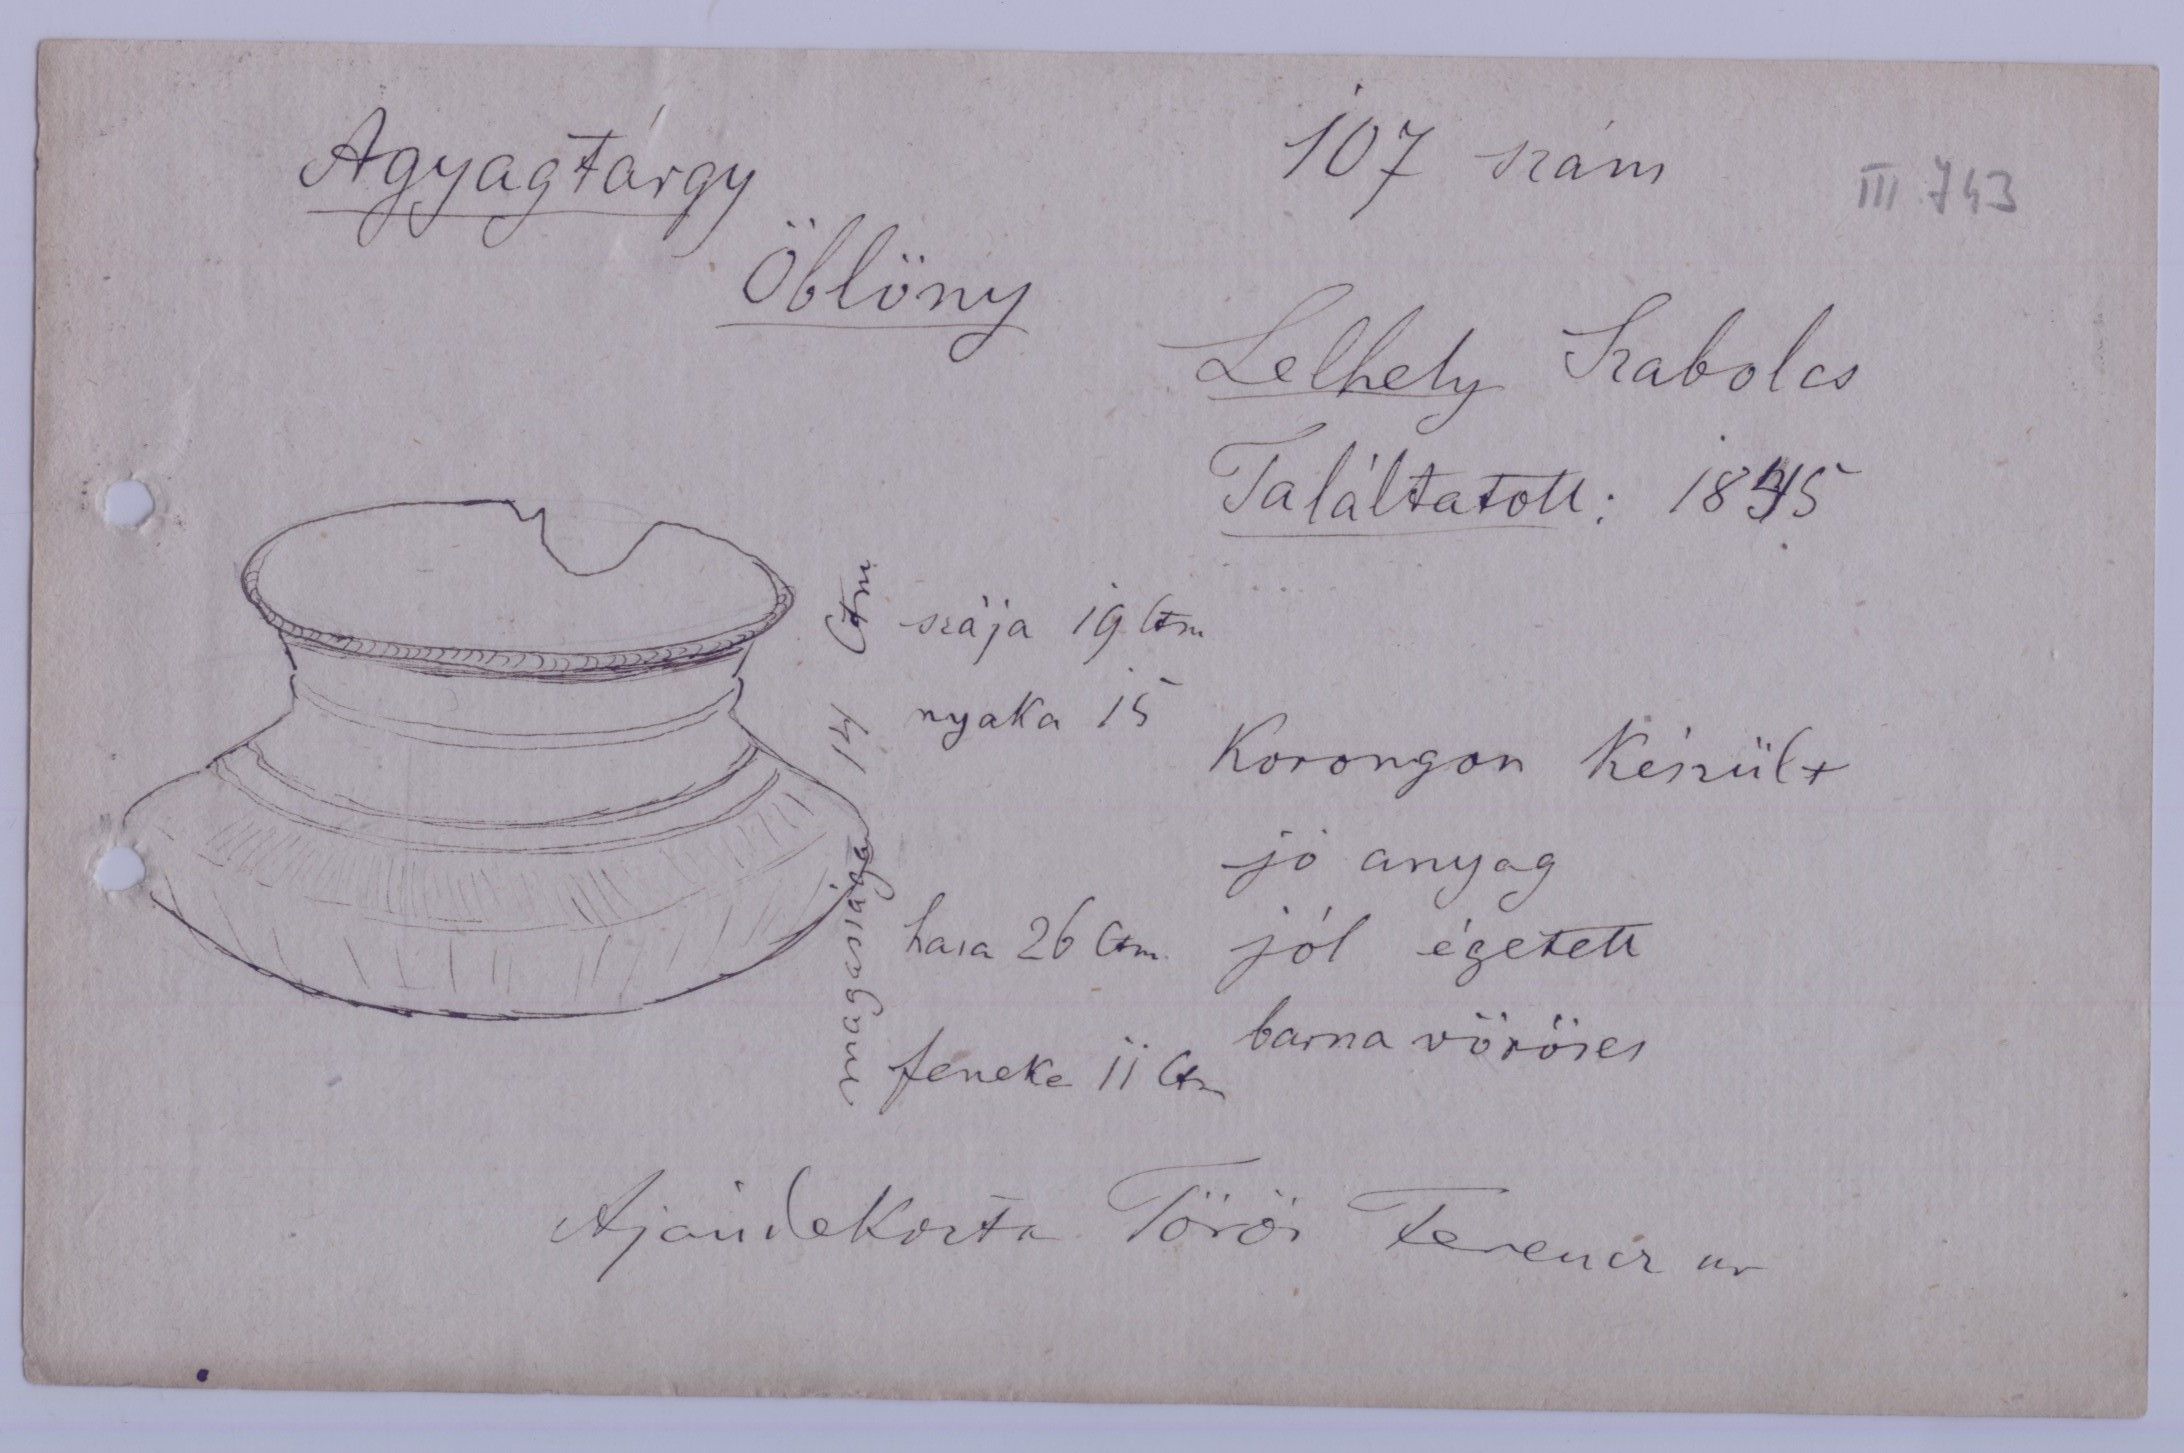 Agyagtárgy
Öblöny
107 szám
III. 743
Lelhely Szabolcs
Találtatott: 1845
magassága 14 Ctm
szája 19 Ctm
nyaka 15
hasa 26 Ctm.
feneke 11 Ctm
Korongon Készült
jó anyag
jól égetett
barna vöröses
Ajándékozta Törös Ferencz ur